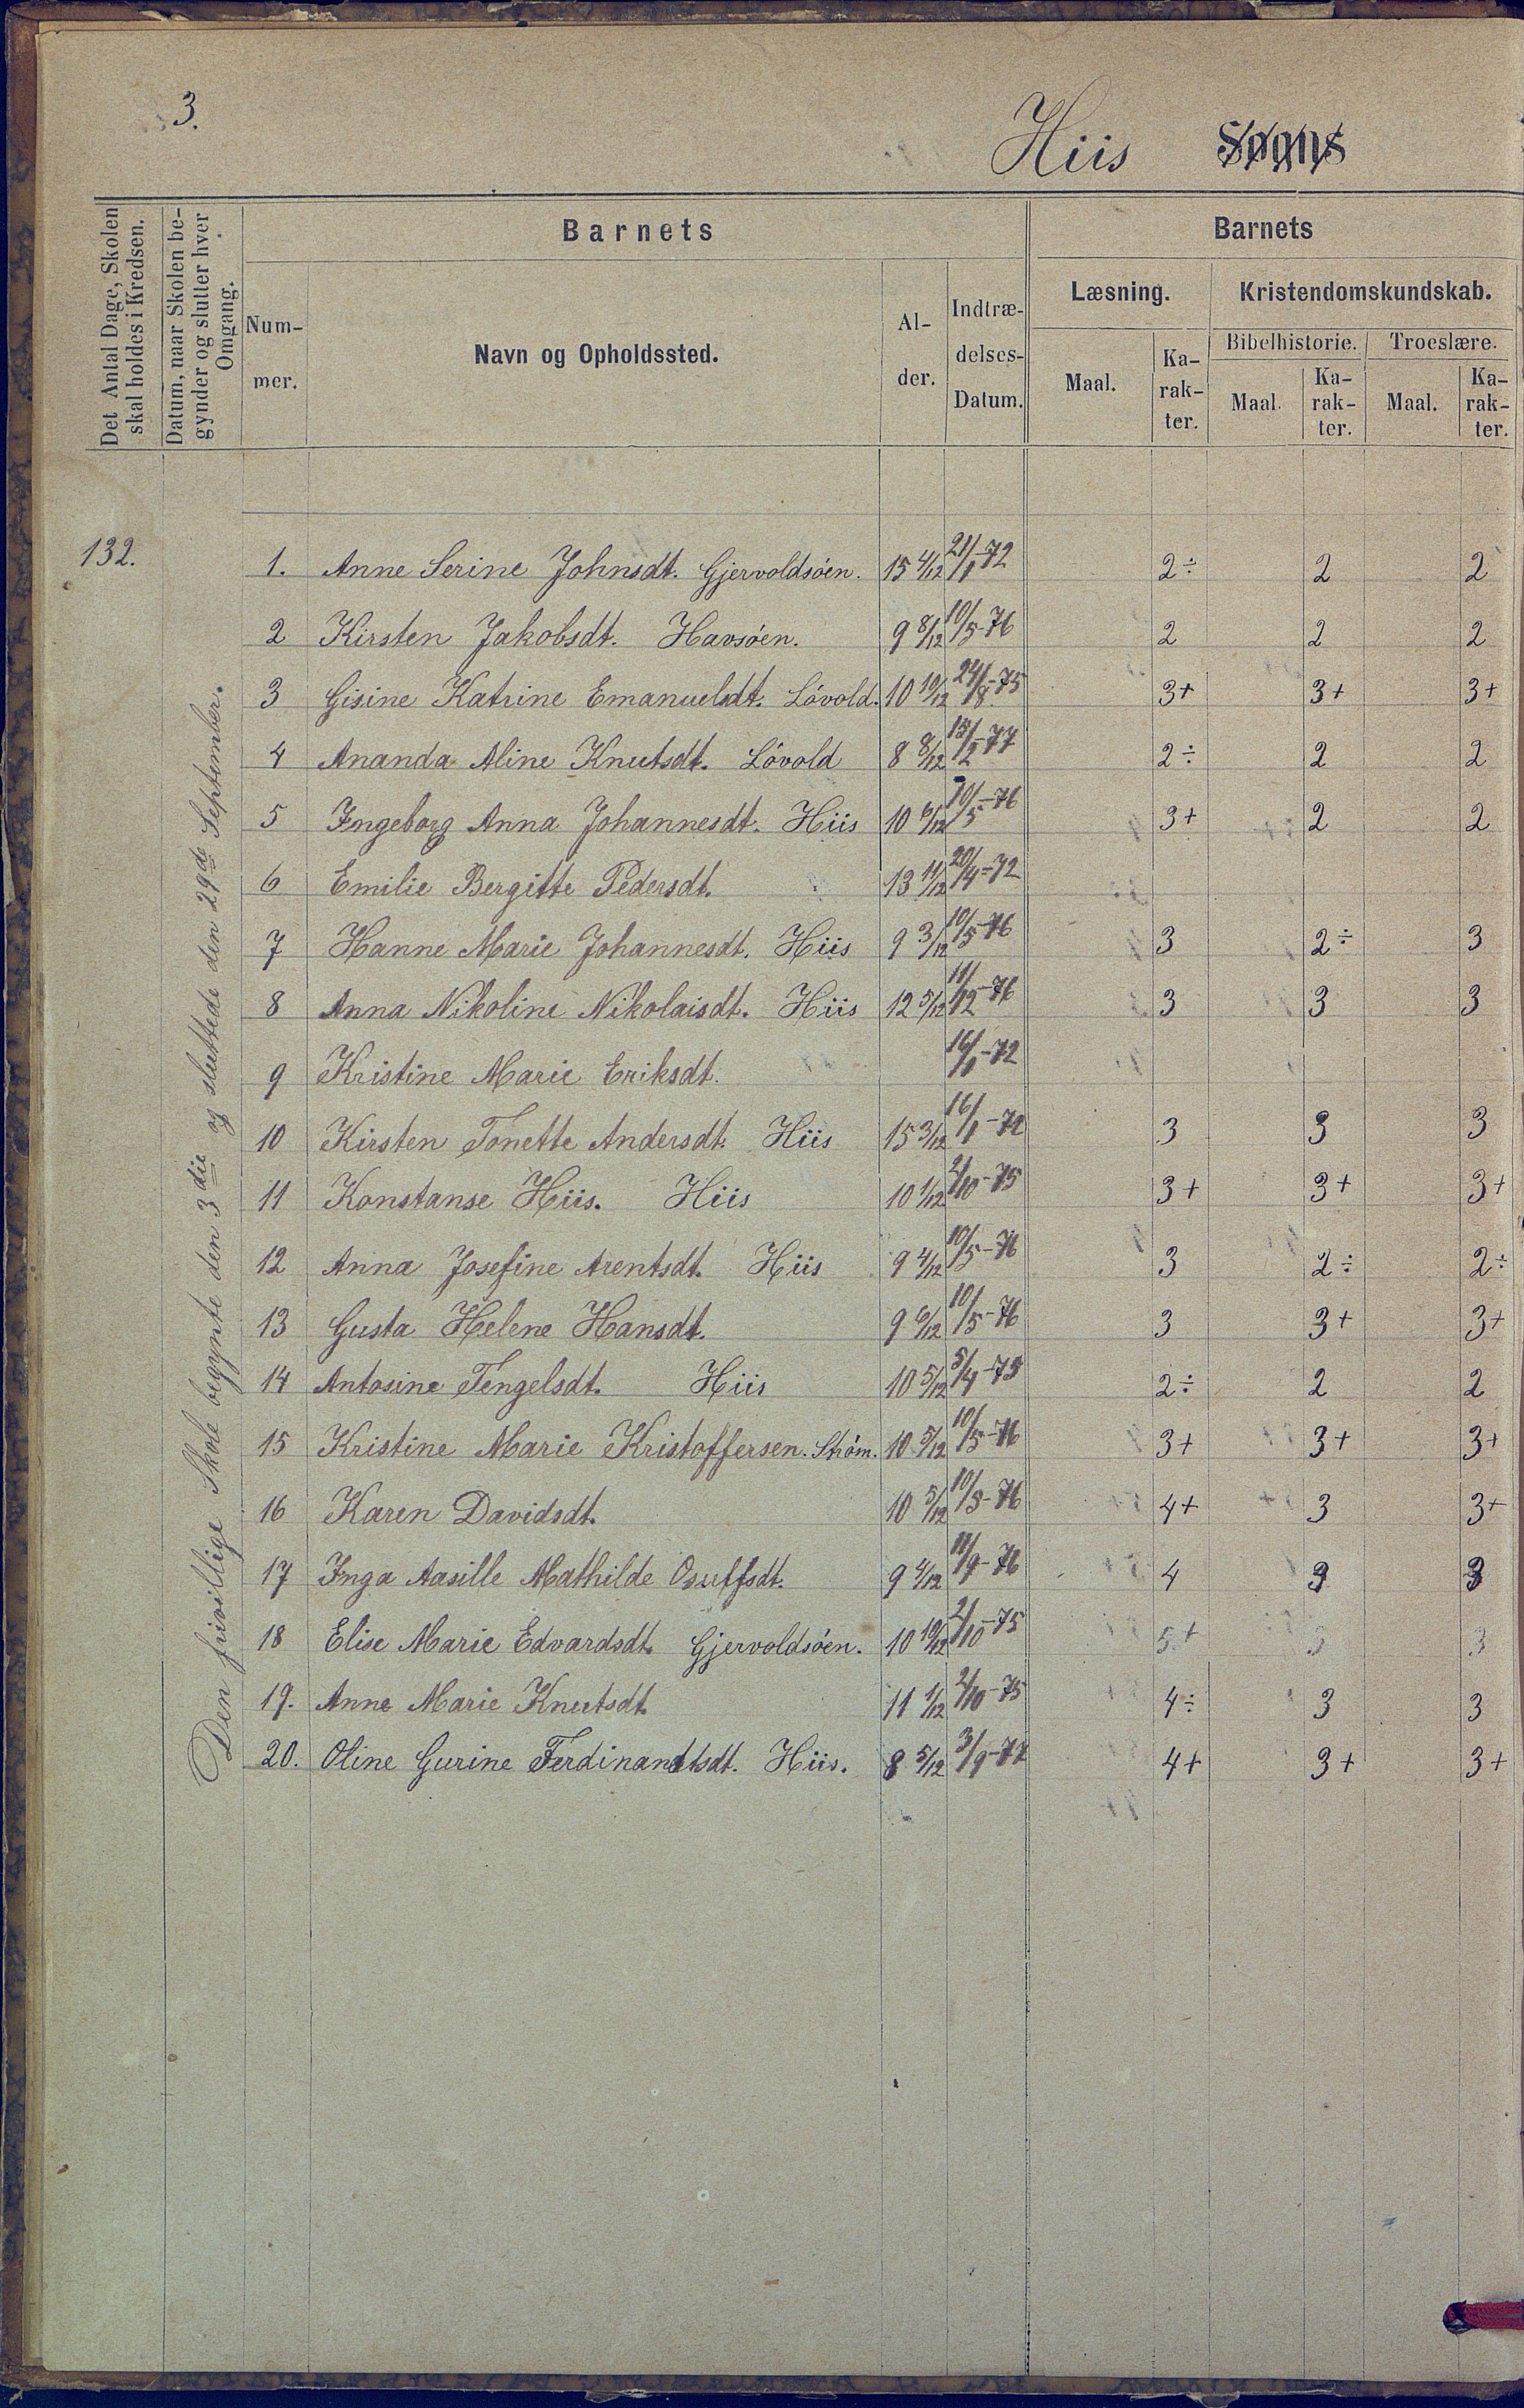 3.
Hiis Sogns
Det Antal Dage, Skolen skal holdes i Kredsen.
Datum, naar Skolen begynder og slutter hver Omgang.
Barnets
Barnets
Nummer.
Navn og Opholdssted.
Alder.
Indtrædelses-Datum.
Læsning.
Kristendomskundskab.
Bibelhistorie. Troeslære.
Maal. Karakter. Maal. Karakter. Maal. Karakter.
132.
Den frivillige Skole begynte den 3die og sluttede den 29de September.
1. Anne Serine Johnsdt. Gjervoldsöen. 15 4/12 21/1-72 2÷ 2 2
2 Kirsten Jakobsdt. Havsöen. 9 8/12 10/5-76 2 2 2
3 Gisine Katrine Emanuelsdt. Lövold. 10 10/12 24/8-75 3+ 3+ 3+
4 Ananda Aline Knutsdt. Lövold 8 8/12 15/2-77 2÷ 2 2
5 Ingeborg Anna Johannesdt. Hiis 10 6/12 10/5-76 3+ 2 2
6 Emilie Bergitte Pedersdt. 13 11/12 20/4-72
7 Hanne Marie Johannesdt. Hiis 9 3/12 10/5-76 3 2÷ 3
8 Anna Nikoline Nikolaisdt. Hiis 12 5/12 11/12-76 3 3 3
9 Kristine Marie Eriksdt. 16/1-72
10 Kirsten Tonette Andersdt. Hiis 15 3/12 16/1-72 3 3 3
11 Konstanse Hiis. Hiis 10 1/12 2/10-75 3+ 3+ 3+
12 Anna Josefine Arentsdt. Hiis 9 4/12 10/5-76 3 2÷ 2÷
13 Gusta Helene Hansdt. 9 6/12 10/5-76 3 3+ 3+
14 Antosine Tengelsdt. Hiis 10 5/12 5/4-75 2÷ 2 2
15 Kristine Marie Kristoffersen. Ström. 10 5/12 10/5-76 3+ 3+ 3+
16 Karen Davidsdt. 10 5/12 10/5-76 4+ 3 3+
17 Inga Aasille Mathilde Osuffsdt. 9 4/12 11/9-76 4 3 3
18 Elise Marie Edvardsdt. Gjervoldsöen. 10 10/12 2/10-75 5+ 3 3
19. Anne Marie Knutsdt. 11 1/12 2/10-75 4÷ 3 3
20. Oline Gurine Ferdinandtsdt. Hiis. 8 5/12 3/9-77 4+ 3+ 3+